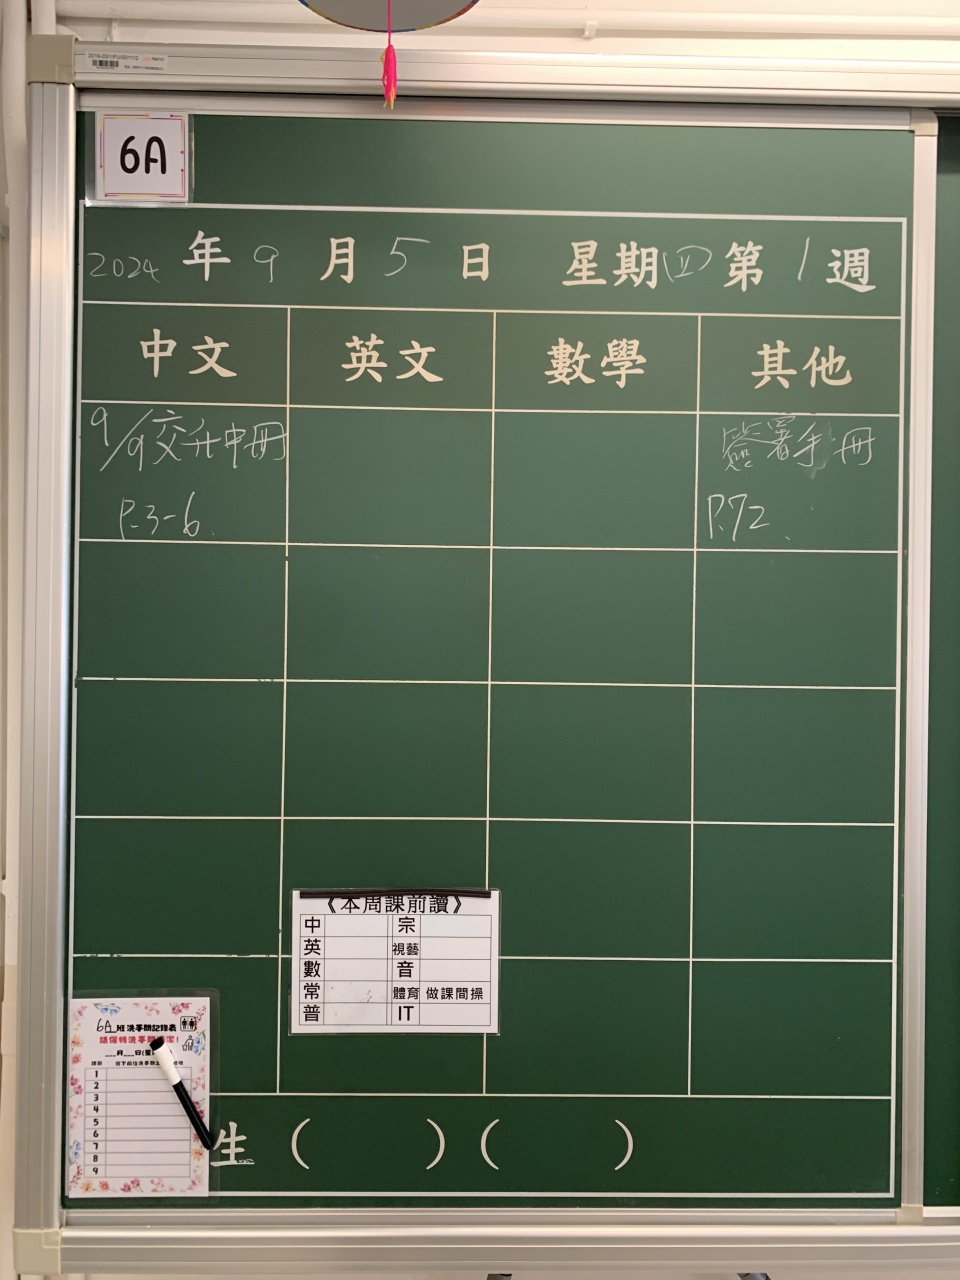 6A
2024 年 9 月 5 日 星期(四) 第 1 週
中文 英文 數學 其他
9/9交升中冊
P.3-6
簽署手冊
P.72
《本周課前讀》
中 宗
英 視藝
數 音
常 體育 做課間操
普 IT
6A 班洗手間記錄表
請保持洗手間清潔!
月 日(星
1
2
3
4
5
6
7
8
9
生 ( ) ( )